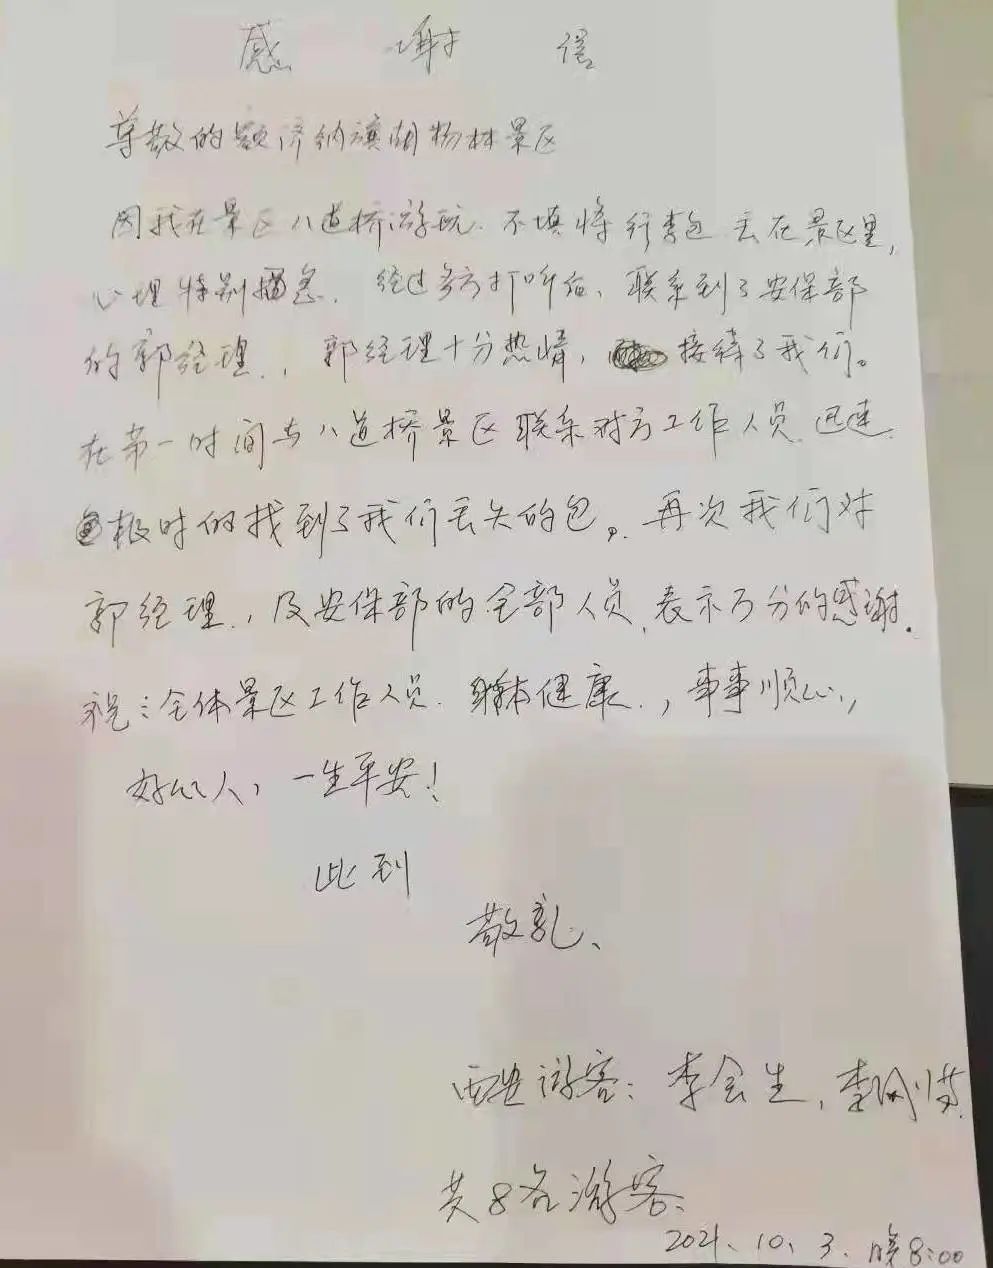 感谢信
尊敬的额济纳旗胡杨林景区
因我在景区八道桥游玩.不填将行李包丢在景区里,
心理特别着急.经过多方打听后、联系到了安保部
的郭经理.,郭经理十分热情,接待了我们。
在第一时间与八道桥景区联系对方工作人员.迅速
极时的找到了我们丢失的包。再次我们对
郭经理.,及安保部的全部人员.表示万分的感谢.
祝:全体景区工作人员.身体健康.,事事顺心,
好心人,一生平安!
此到
敬礼、
西安游客:李会生,李
共8名游客、
2021.10.3.晚8:00